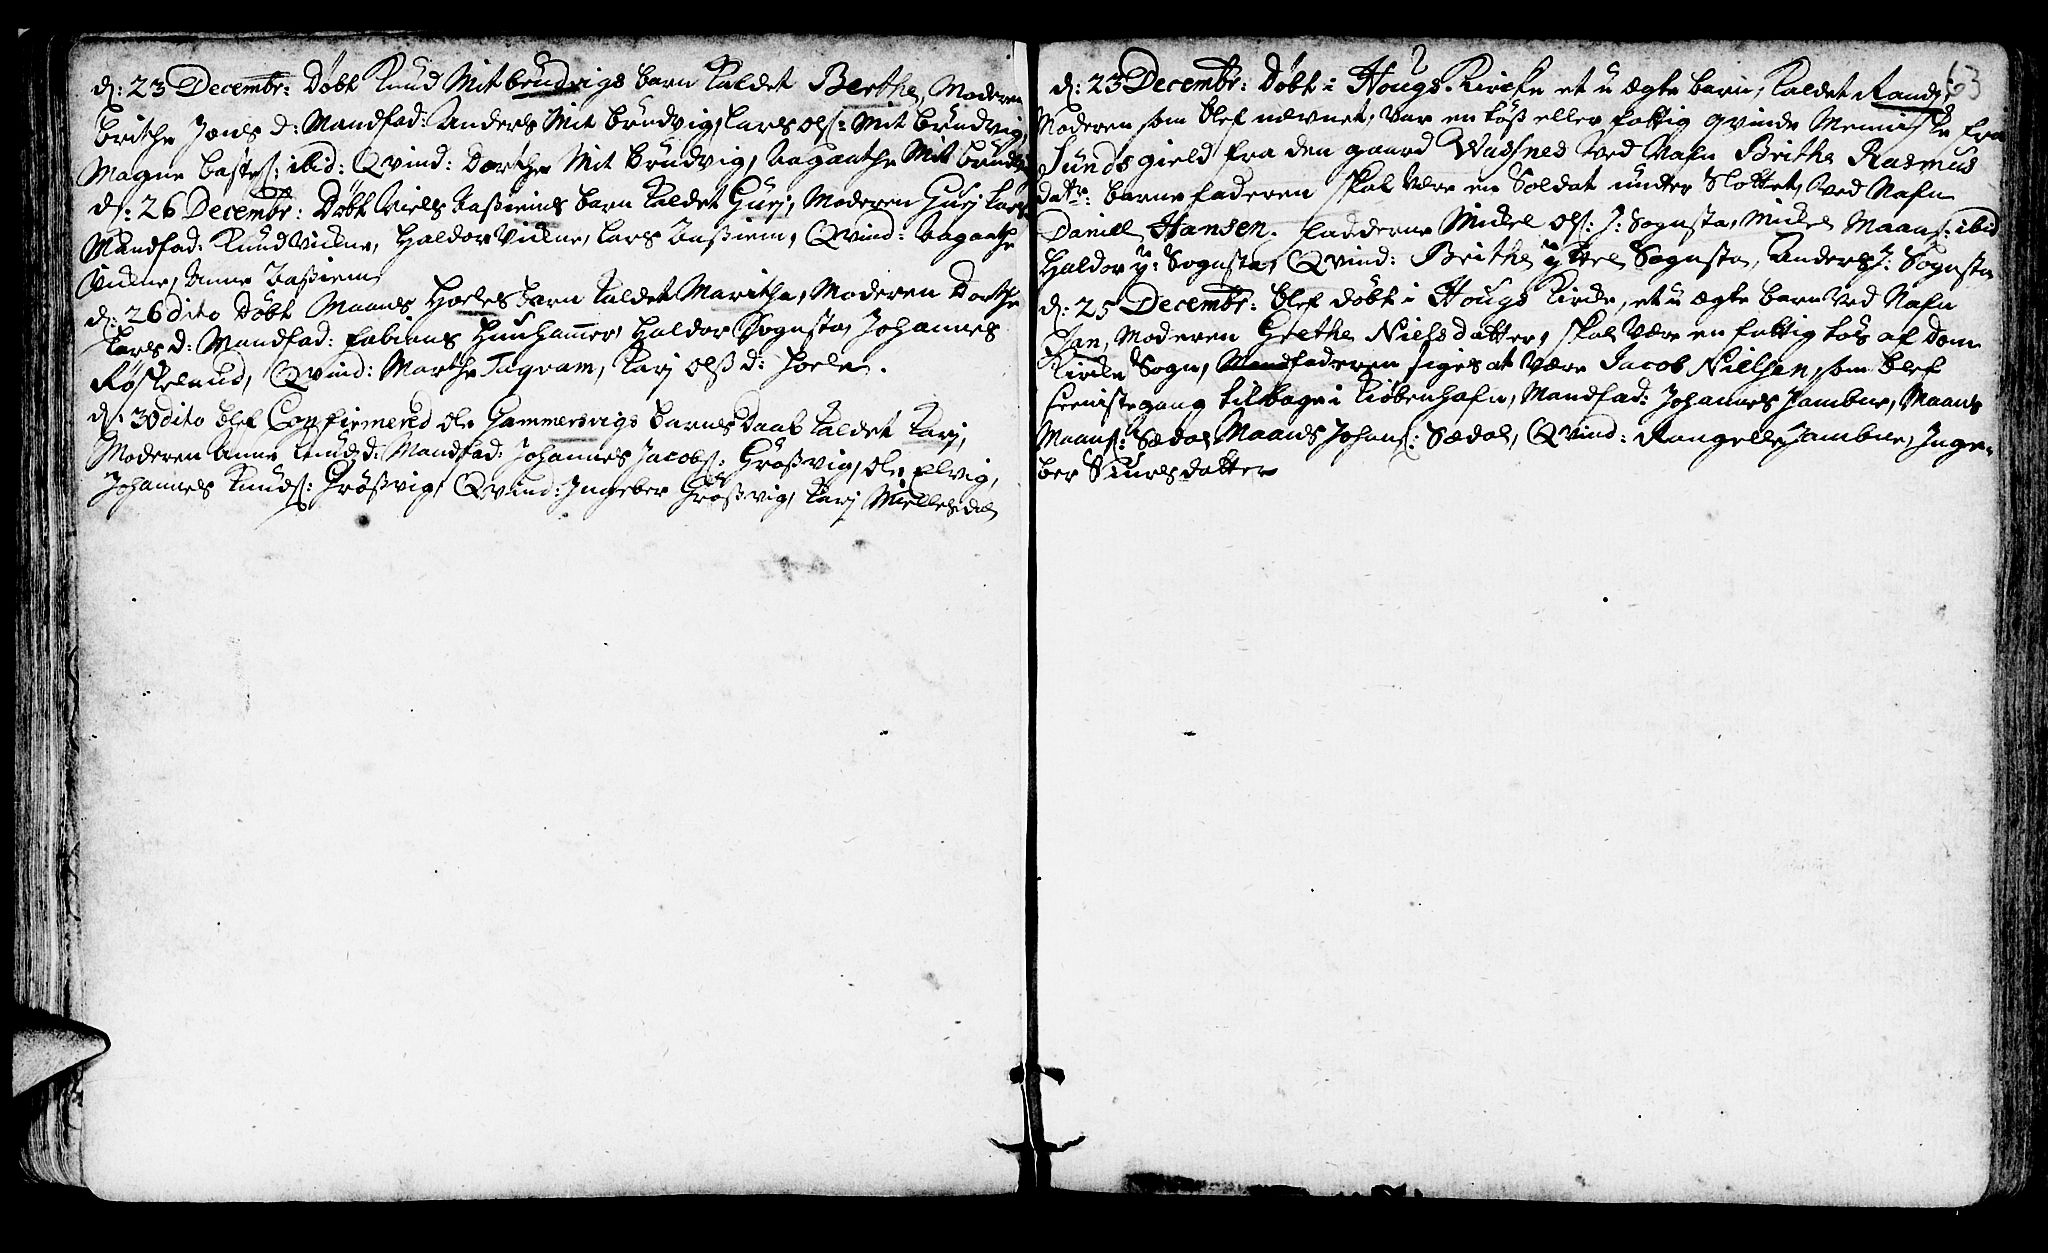 d: 23 Decembr: Døbt Knud Mitbrudvigs barn kaldet Berthe, Moderen
brithe Jons d: Mandfad: Anders Mit brudvig, Lars Ols: Mit brudvig,
Magne bastes: ibid: Qvind: Dorthe Mit brudvig, Aagaathe Mit brudv
d: 26 Decembr: Døbt Niels Taßiems barn kaldet Gurj, Moderen Gurj Lars
Mandfad: Knud Vikne, Haldor Vikne, Lars Taßiem, Qvind: Aagaathe
Vikne, Anne Taßiem
d: 26 dito Døbt Maans Hoeles barn kaldet Marithe, Moderen Dorthe
Lars d: Mandfad: Fabians Hunhamer, Haldor Sognsta, Johannes
Røskelund, Qvind: Marthe Tugram, Karj Olß d: Hoele.
d: 30 dito blef Confirmered Ole Hammersvigs barnes Daab kaldet Karj,
Moderen Anne Knudsd: Mandfad: Johannes Jacobs: Großvig, Ole Elvig,
Johannes Knuds: Großvig, Qvind: Ingeber Großvig, Karj Miellesdal
63
d: 23 Decembr: Døbt i Hougs Kircke et u ægte barn, kaldet Randj,
Moderen som blef nævnet, var en løß eller fattig qvinde Menniske fra
Sunds gield fra den gaard Wassnes ved Nafn Brithe Rasmus
datr: barnefaderen skal være en Soldat under Slottet, ved Nafn
Daniell Hansen. Fadderne Mickel Ols: J: Sognsta, Mickel Maans: ibid
Haldor y: Sognsta, Qvind: Brithe ytre Sognsta, Anders J: Sognsta
d: 25 Decembr: blef døbt i Hougs Kircke, et u ægte barn ved Nafn
Jan, Moderen Grethe Nielsdatter, skal være en fattig løs af Dom
Kircke Sogn, Mandfaderen siges at være Jacob Nielsen, som blef
seeniste gang tilbage i Kiøbenhafn, Mandfad: Johannes Jambne, Maans
Maans: Sædal, Maans Johans: Sædal, Qvind: Rangelle Jambne, Inge-
ber Siursdatter